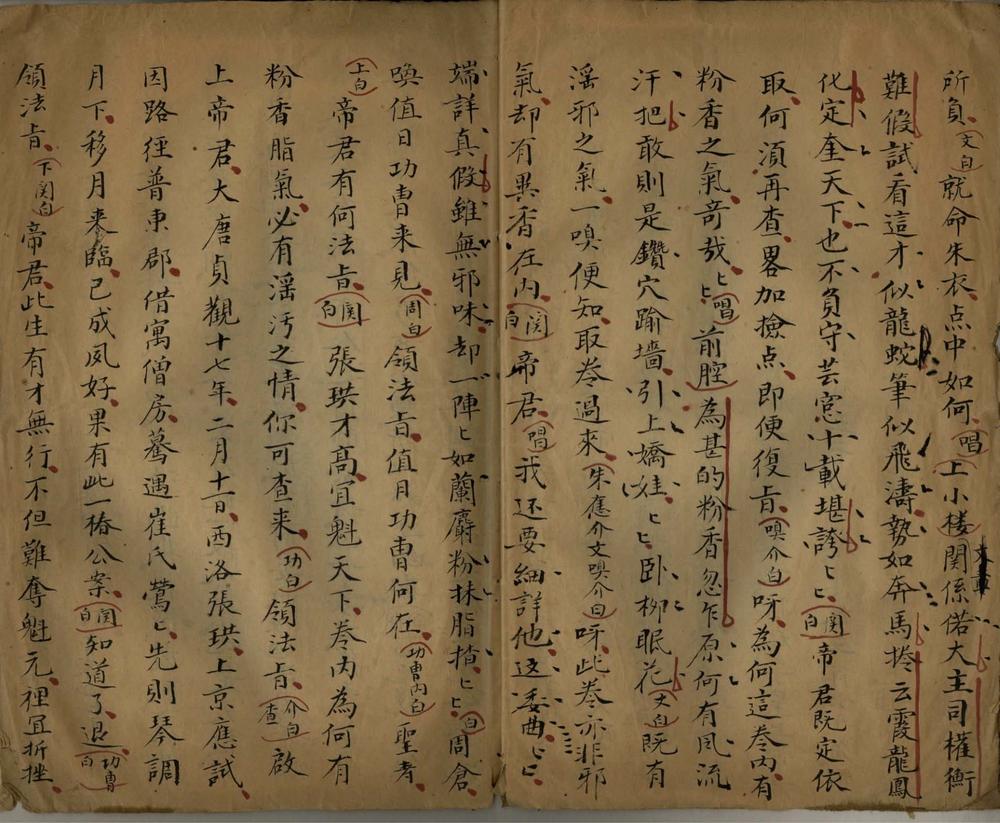 所負(文白)就命朱衣点中如何(唱)上小楼関係偌大主司權衡
難假試看這才似龍蛇筆似飛濤勢如奔馬捲云霞龍鳳
化定奎天下也不負守芸窓十載堪誇匕匕(関白)帝君既定依
取何湏再查畧加撿点即便復旨(嗅介白)呀為何這卷內有
粉香之氣竒哉匕匕(唱)前腔為甚的粉香忽乍原何有風流
汗把敢則是鑽穴踰墻引上嬌娃匕匕卧柳眠花(文白)既有
滛邪之氣一嗅便知取卷過來(朱應介文嗅介白)呀此卷亦非邪
氣却有異香在內(関白)帝君(唱)我还要細詳他这委曲匕匕
端詳真假雖無邪味却一陣匕如蘭麝粉抹脂揸匕匕(白)周倉
喚值日功曹来見(周白)領法旨值月功曹何在(功曹內白)聖者
(上白)帝君有何法旨(関白)張珙才高冝魁天下卷內為何有
粉香脂氣必有滛污之情你可查来(功白)領法旨(介白查)啟
上帝君大唐貞觀十七年二月十一日西洛張珙上京應試
因路徑普東郡借寓僧房驀遇崔氏鶯匕先則琴調
月下移月来臨已成夙好果有此一樁公案(関白)知道了退(功曹白)
領法旨(下関白)帝君此生有才無行不但難奪魁元裡冝折挫